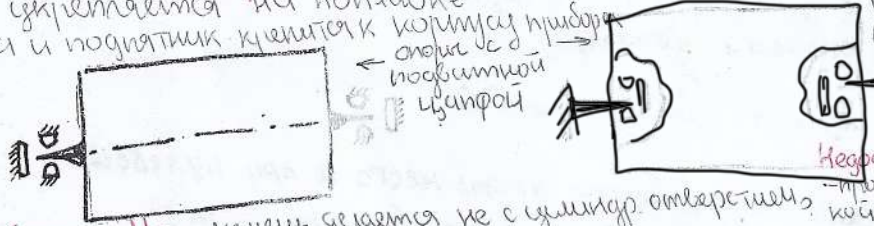 укрепляется на поплавке
и подпятник крепится к корпусу прибора
← опоры с →
подвижной
цапфой
Недо
делается не с цилиндр. отверстием,